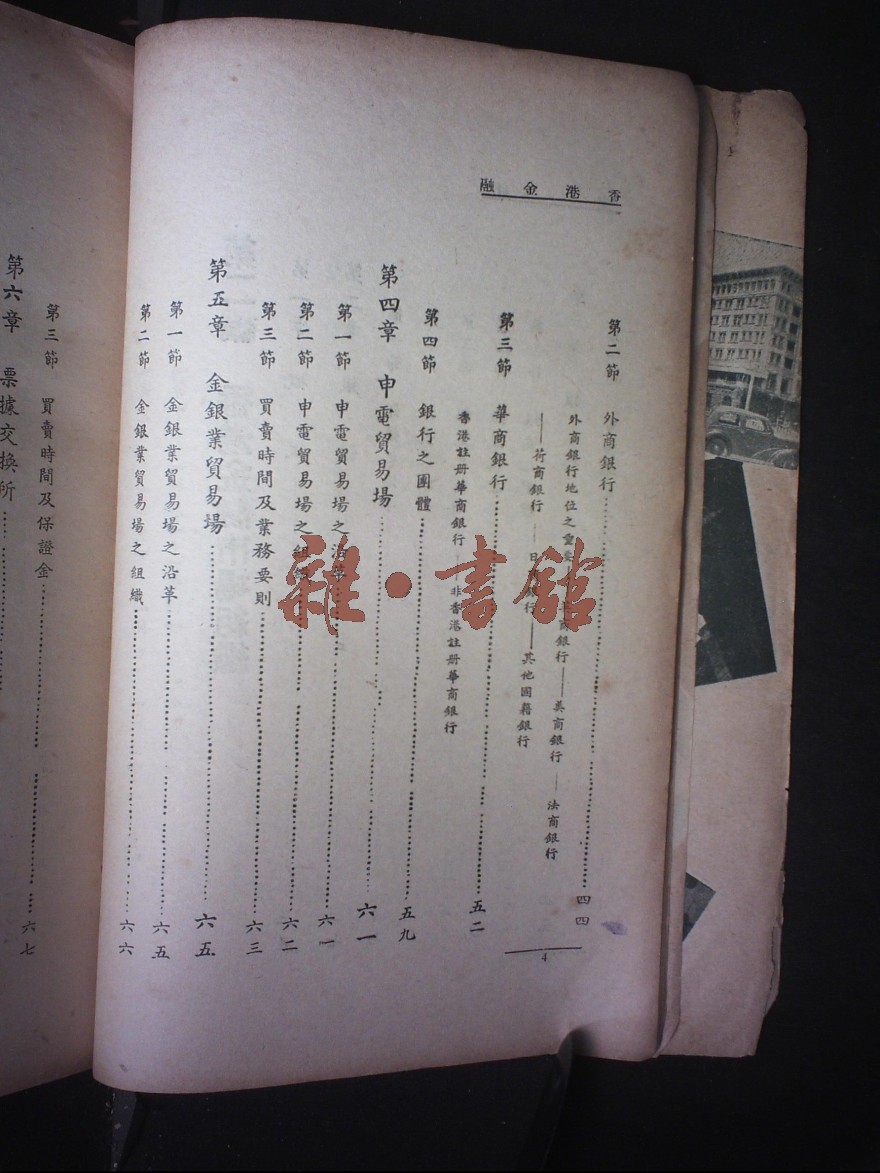 香港金融
第二節　外商銀行……四四
外商銀行地位之重要——英商銀行——美商銀行——法商銀行
——荷商銀行——日商銀行——其他國籍銀行
第三節　華商銀行……五二
香港註册華商銀行——非香港註册華商銀行
第四節　銀行之團體……五九
第四章　申電貿易場……六一
第一節　申電貿易場之沿革……六一
第二節　申電貿易場之組織……六二
第三節　買賣時間及業務要則……六三
第五章　金銀業貿易場……六五
第一節　金銀業貿易場之沿革……六五
第二節　金銀業貿易場之組織……六六
4
第三節　買賣時間及保證金……六七
第六章　票據交換所……
雜·書館